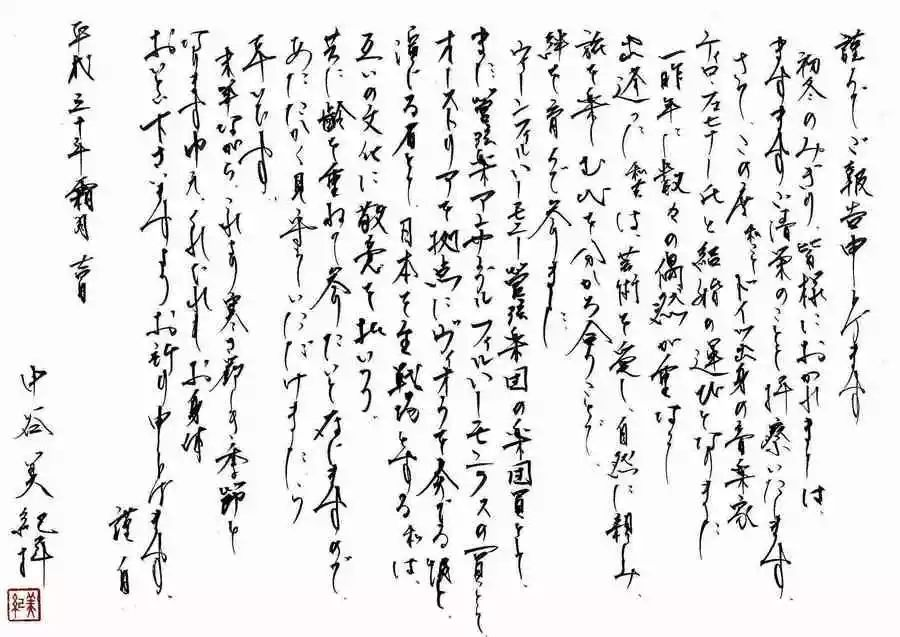 謹んでご報告申し上げます
初冬のみぎり、皆様におかれましては、
ますますご清栄のことと拝察いたします。
さて、この度 私ことドイツ出身の音楽家
ティロ・フェヒナー氏と結婚の運びとなりました
一昨年に数々の偶然が重なり
出逢った私たちは、芸術を愛し、自然に親しみ、
旅を楽しむ心を分かち合うことで、
絆を育んで参りました。
ウィーンフィルハーモニー管弦楽団の楽団員として、
また、管弦楽アンサンブルフィルハーモニクスの一員として
オーストリアを拠点にヴィオラを奏でる彼と、
演じる者として、日本を主戦場とする私は、
互いの文化に敬意を払いつつ、
共に齢を重ねて参りたいと存じますので、
あたたかく見守っていただけましたら
幸いです。
末筆ながら、これより寒さ厳しき季節と
なります申え、くれぐれもお身体
おいといくださいますようお祈り申し上げます。
謹白
平成三十年霜月 吉日
中谷美紀拝
美紀